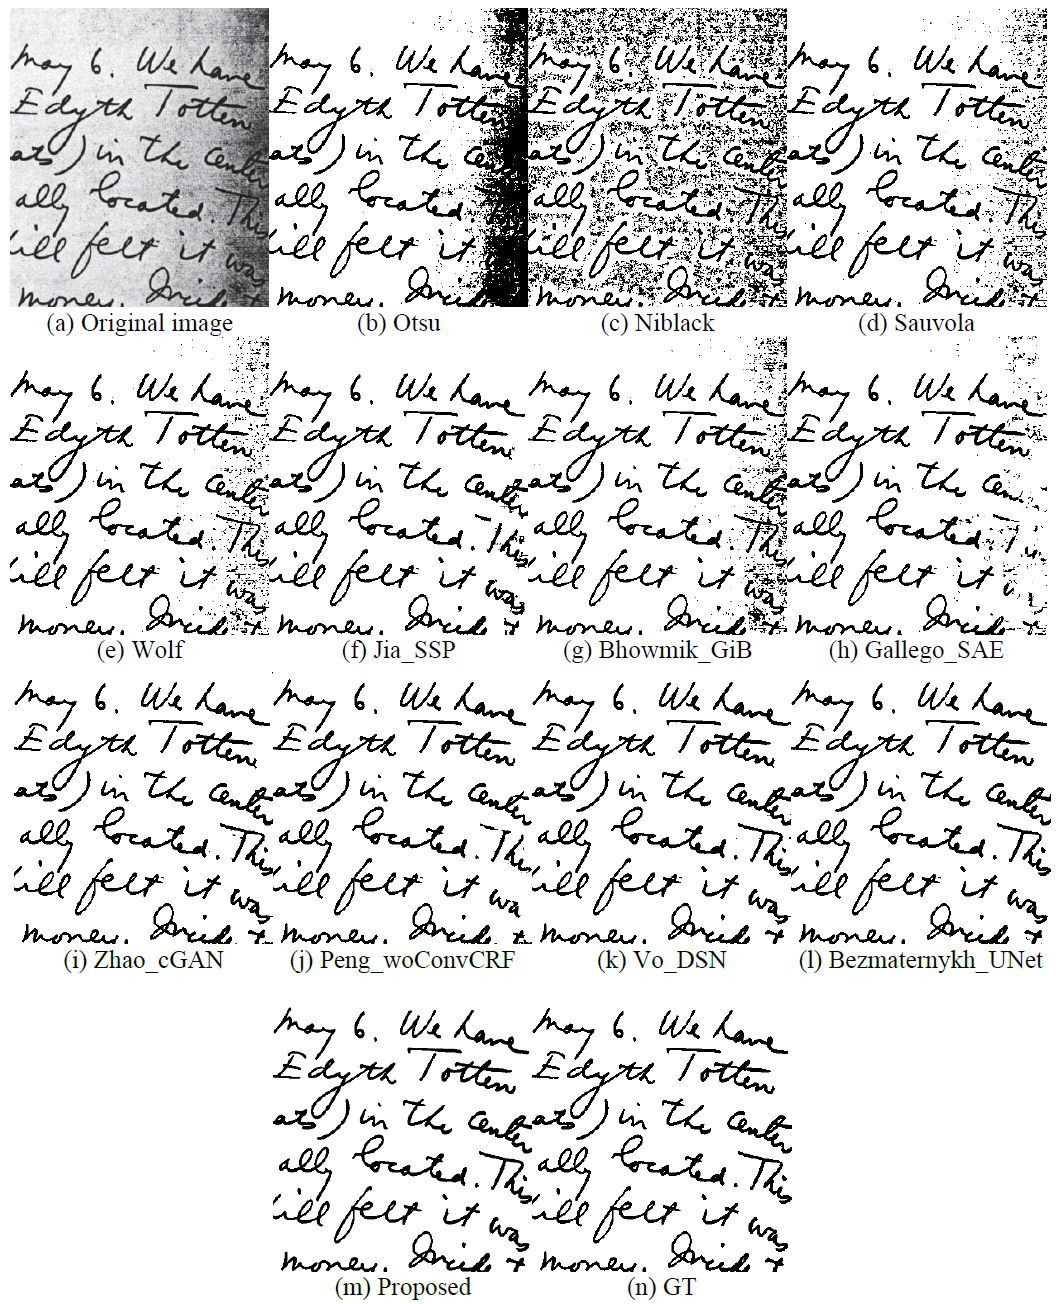 may 6. We have
Edyth Totten
ats) in the center
ally located. This
ill felt it was
money.
(a) Original image
may 6. We have
Edyth Totten
ats) in the cen
ally located.
ill felt it
money.
(b) Otsu
may 6. We have
Edyth Totten
ats) in the center
ally located. This
ill felt it was
money.
(c) Niblack
may 6. We have
Edyth Totten
ats) in the center
ally located. This
ill felt it was
money.
(d) Sauvola
may 6. We have
Edyth Totten
ats) in the center
ally located. This
ill felt it was
money.
(e) Wolf
may 6. We have
Edyth Totten
ats) in the center
ally located. This
ill felt it was
money.
(f) Jia_SSP
may 6. We have
Edyth Totten
ats) in the center
ally located. This
ill felt it was
money.
(g) Bhowmik_GiB
may 6. We have
Edyth Totten
ats) in the cen
ally located.
ill felt it
money.
(h) Gallego_SAE
may 6. We have
Edyth Totten
ats) in the center
ally located. This
ill felt it was
money.
(i) Zhao_cGAN
may 6. We have
Edyth Totten
ats) in the center
ally located. This
ill felt it wa
money.
(j) Peng_woConvCRF
may 6. We have
Edyth Totten
ats) in the center
ally located. This
ill felt it was
money.
(k) Vo_DSN
may 6. We have
Edyth Totten
ats) in the center
ally located. This
ill felt it was
money.
(l) Bezmaternykh_UNet
may 6. We have
Edyth Totten
ats) in the center
ally located. This
ill felt it was
money.
(m) Proposed
may 6. We have
Edyth Totten
ats) in the center
ally located. This
ill felt it was
money.
(n) GT